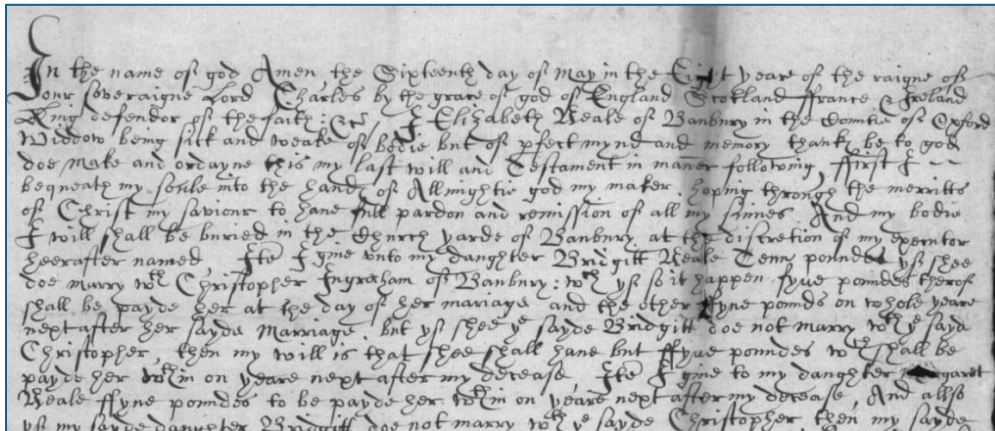 In the name of god Amen, the Sixteenth day of May in the Eight yeare of the raigne of
our Soveraigne Lord Charles by the grace of god of England Scotland ffrance & Ireland
King defendor of the faith: &c I Elizabeth Beale of Banbury in the Countie of Oxford
Widdow being sick and weake of bodie but of pfect mynd and memory thank be to god
doe make and ordayne this my last will and Testament in maner following, ffirst I
bequeath my soule into the hands of Allmightie god my maker hoping through the merritts
of Christ my saviour to haue full pardon and remission of all my sinnes And my bodie
I will shall be buried in the Church yarde of Banbury at the discretion of my executor
heerafter named, Ite I giue vnto my daughter Bridgitt Beale Tenn poundes yf shee
doe marry wth Christopher Ingraham of Banbury: wch yf so it happen fyue poundes therof
shall be payde her at the day of her mariage and the other ffyue pounds on whole yeare
next after her sayde Marriage but yf shee ye sayde Bridgitt doe not marry wth ye sayd
Christopher, then my will is that shee shall haue but ffyue poundes wch shall be
payde her wthin on yeare next after my decease, Ite I giue to my daughter Margaret
Beale ffyue poundes to be payde her wthin on yeare next after my decease, And allso
yf my sayde daughter Bridgitt doe not marry wth ye sayde Christopher then my sayde